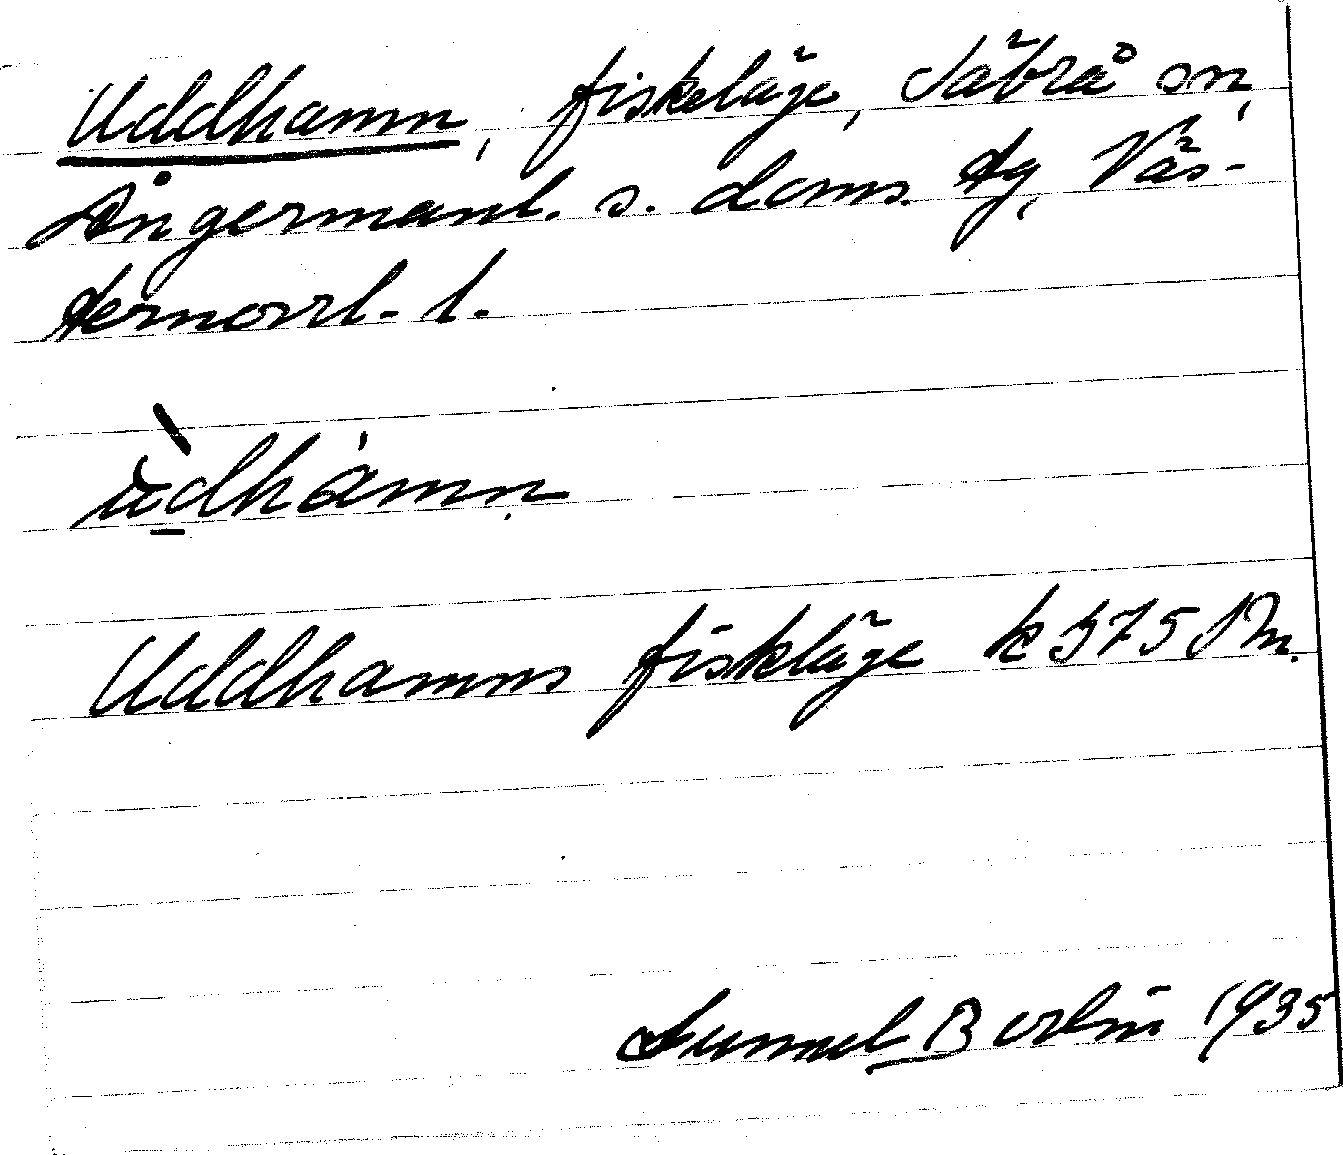 Uddhamn, fiskeläge, Säbrå sn,
Ångermanl. s. doms. tg, Väs-
ternorrl. l.
ùdhámn
Uddhamns fiskläge k 575 Rn.
Gunnel Berlin 1935